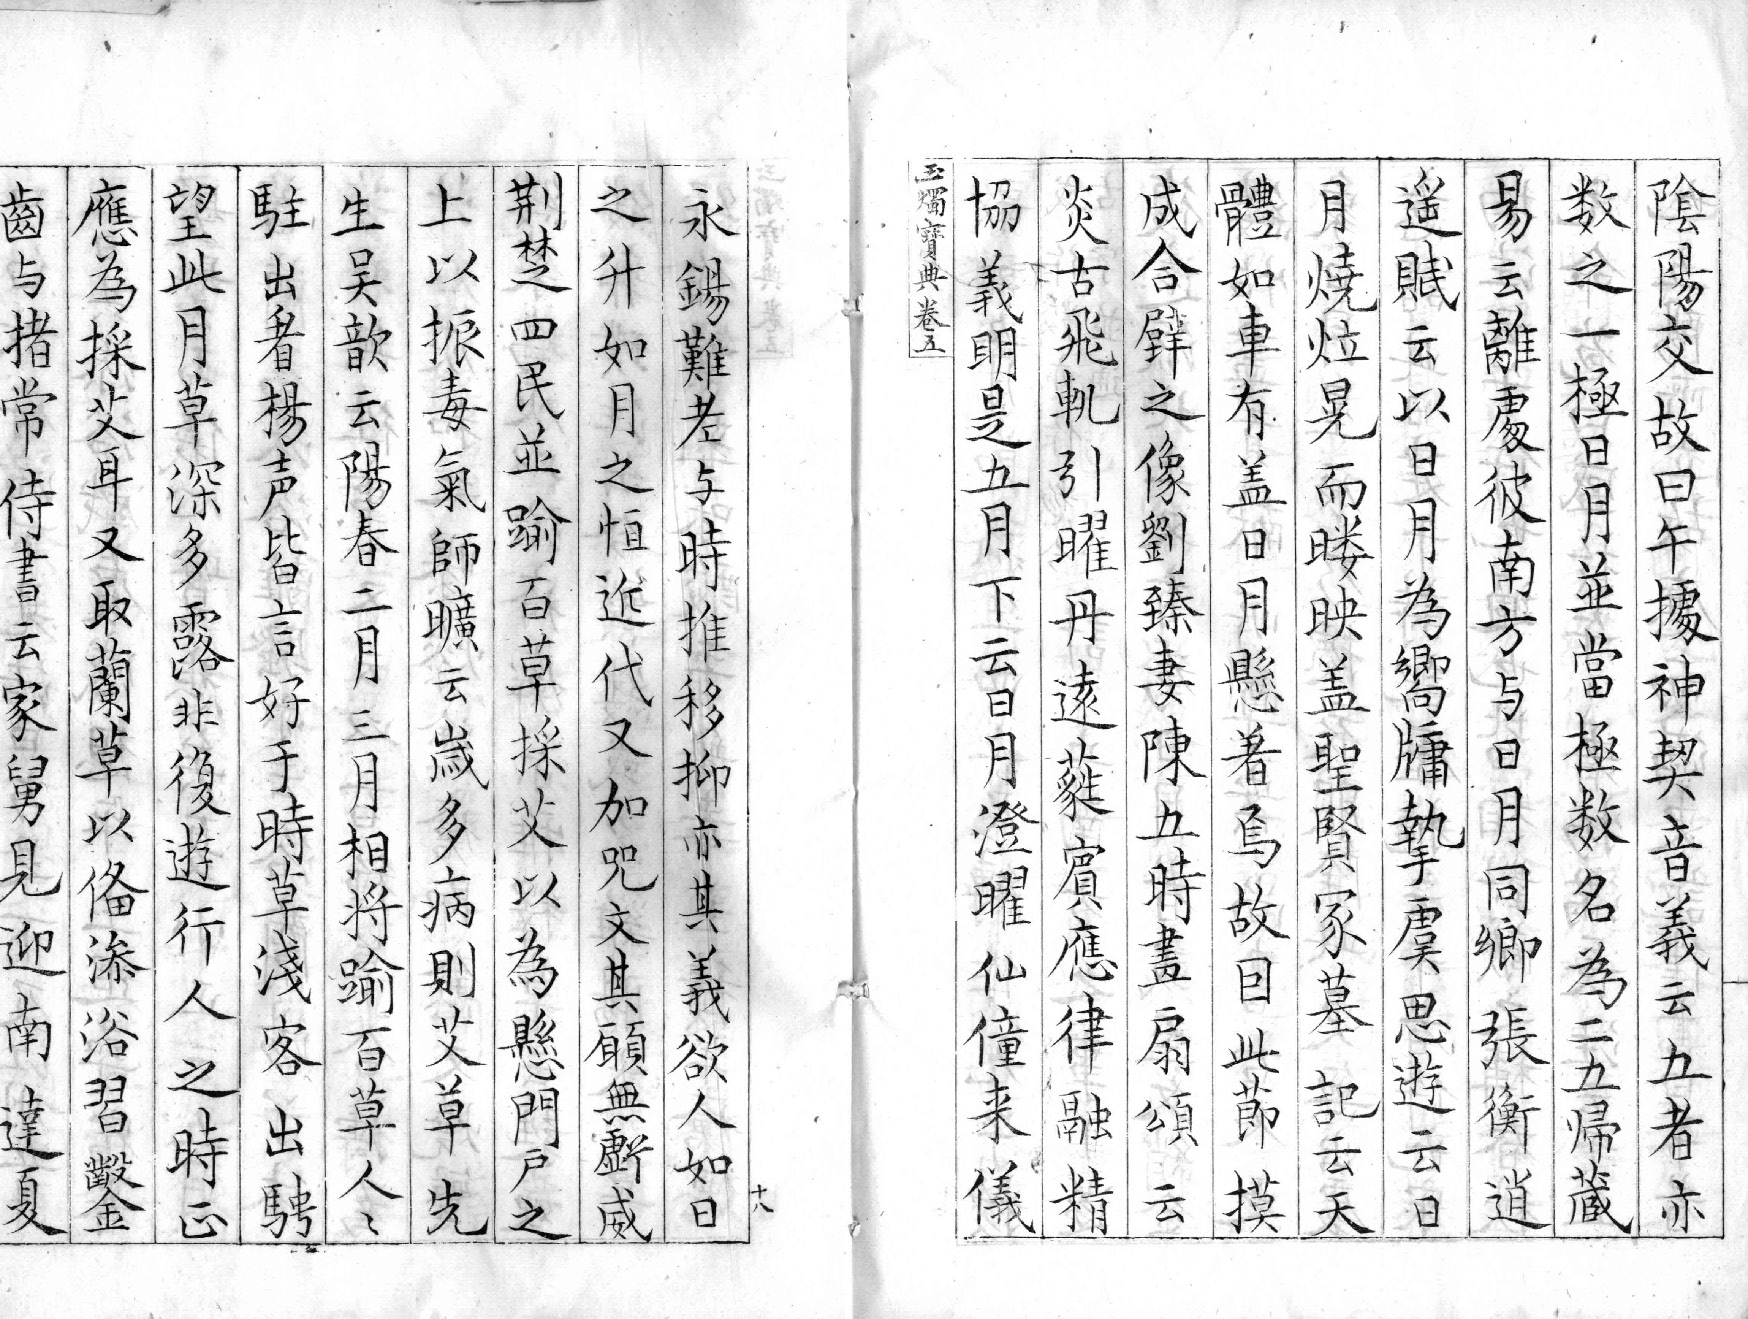 陰陽交故曰午據神契音義云五者亦
数之一極日月並當極数名為二五歸蔵
易云離處彼南方与日月同鄉張衡逍
遥賦云以日月為嚮牖摯虞思遊云日
月燒炷晃而映盖聖賢冢墓記云天
體如車有盖日月懸著焉故因此節摸
成合辟之像劉臻妻陳五時畫扇頌云
炎古飛軌引曜丹遠蕤賓應律融精
協義明是五月下云日月澄曜仙僮来儀
玉燭寶典卷五
十八
永錫難老与時推移抑亦其義欲人如日
之升如月之恒近代又加咒文其願無虧威
荆楚四民並踰百草採艾以為懸門戶之
上以振毒氣師曠云歲多病則艾草先
生吴歆云陽春二月三月相將踰百草人〻
駐出看楊声皆言好于時草淺客出騁
望此月草深多露非復遊行人之時正
應為採艾耳又取蘭草以俻添浴習鑿
齒与褚常侍書云家舅見迎南達夏